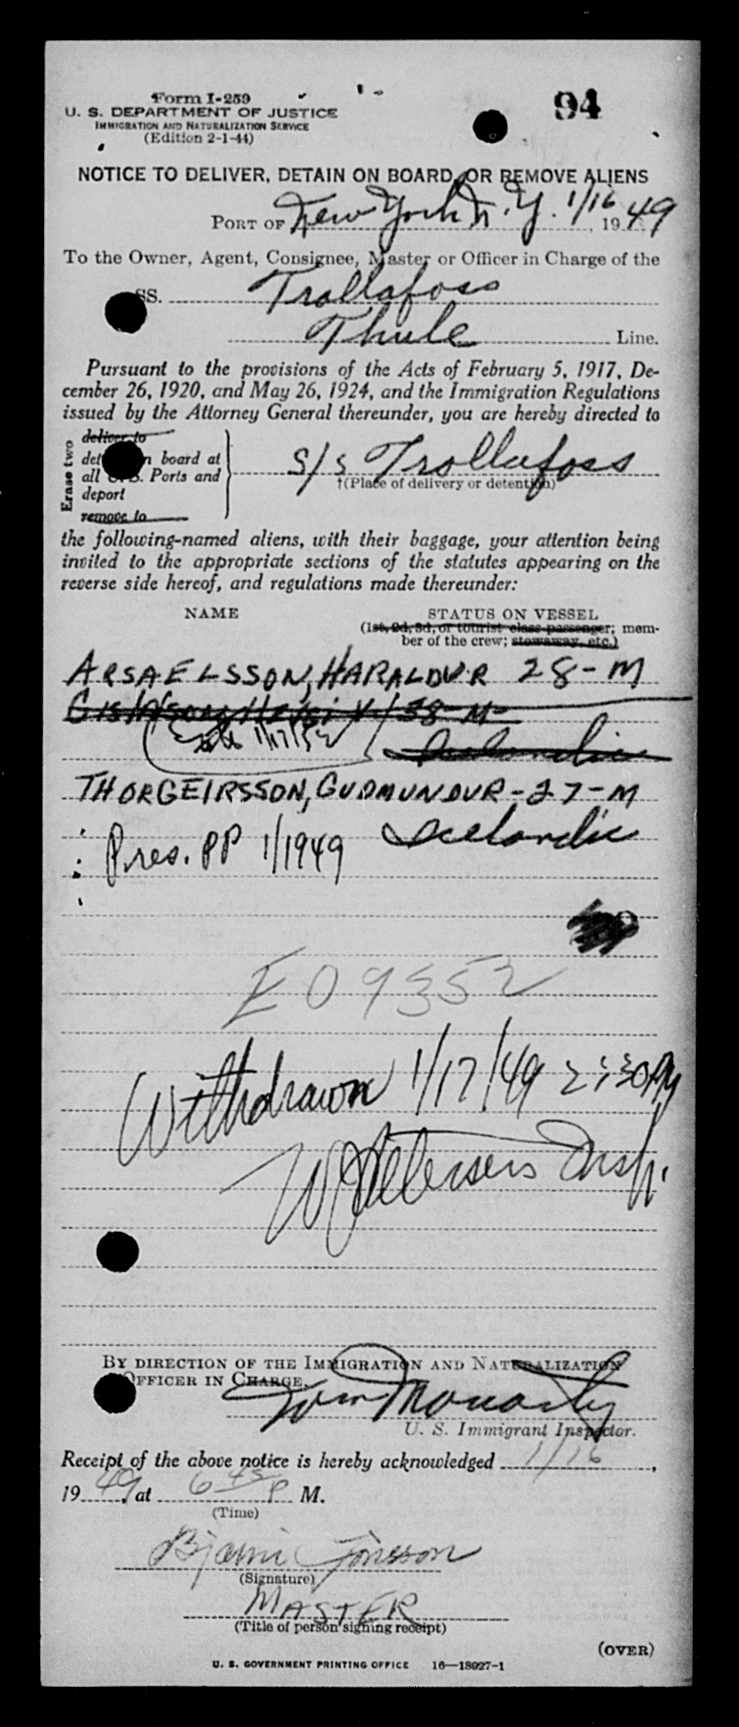 Form I-259
94
U. S. DEPARTMENT OF JUSTICE
IMMIGRATION AND NATURALIZATION SERVICE
(Edition 2-1-44)
NOTICE TO DELIVER, DETAIN ON BOARD, OR REMOVE ALIENS
PORT OF New York N. Y. 1/16, 1949
To the Owner, Agent, Consignee, Master or Officer in Charge of the
SS. Trollafoss
Thule Line.
Pursuant to the provisions of the Acts of February 5, 1917, De-
cember 26, 1920, and May 26, 1924, and the Immigration Regulations
issued by the Attorney General thereunder, you are hereby directed to
Erase two
deliver to
det n board at
all U. S. Ports and
deport
remove to
S/S Trollafoss
†(Place of delivery or detention)
the following-named aliens, with their baggage, your attention being
invited to the appropriate sections of the statutes appearing on the
reverse side hereof, and regulations made thereunder:
NAME STATUS ON VESSEL
(1st, 2d, 3d, or tourist class passenger; mem-
ber of the crew; stowaway, etc.)
ARSAELSSON, HARALDUR 28-M
38-M-
1/17/52
Icelandic
THORGEIRSSON, GUDMUNDUR-27-M
Pres. PP 1/1949 Icelandic
E09352
Withdrawn 1/17/49 2:30PM
Insp.
BY DIRECTION OF THE IMMIGRATION AND NATURALIZATION
OFFICER IN CHARGE.
U. S. Immigrant Inspector.
Receipt of the above notice is hereby acknowledged 1/16,
1949, at 6 45 P M.
(Time)
Bjarni Jónsson
(Signature)
MASTER
(Title of person signing receipt)
(OVER)
U. S. GOVERNMENT PRINTING OFFICE 16—18027-1